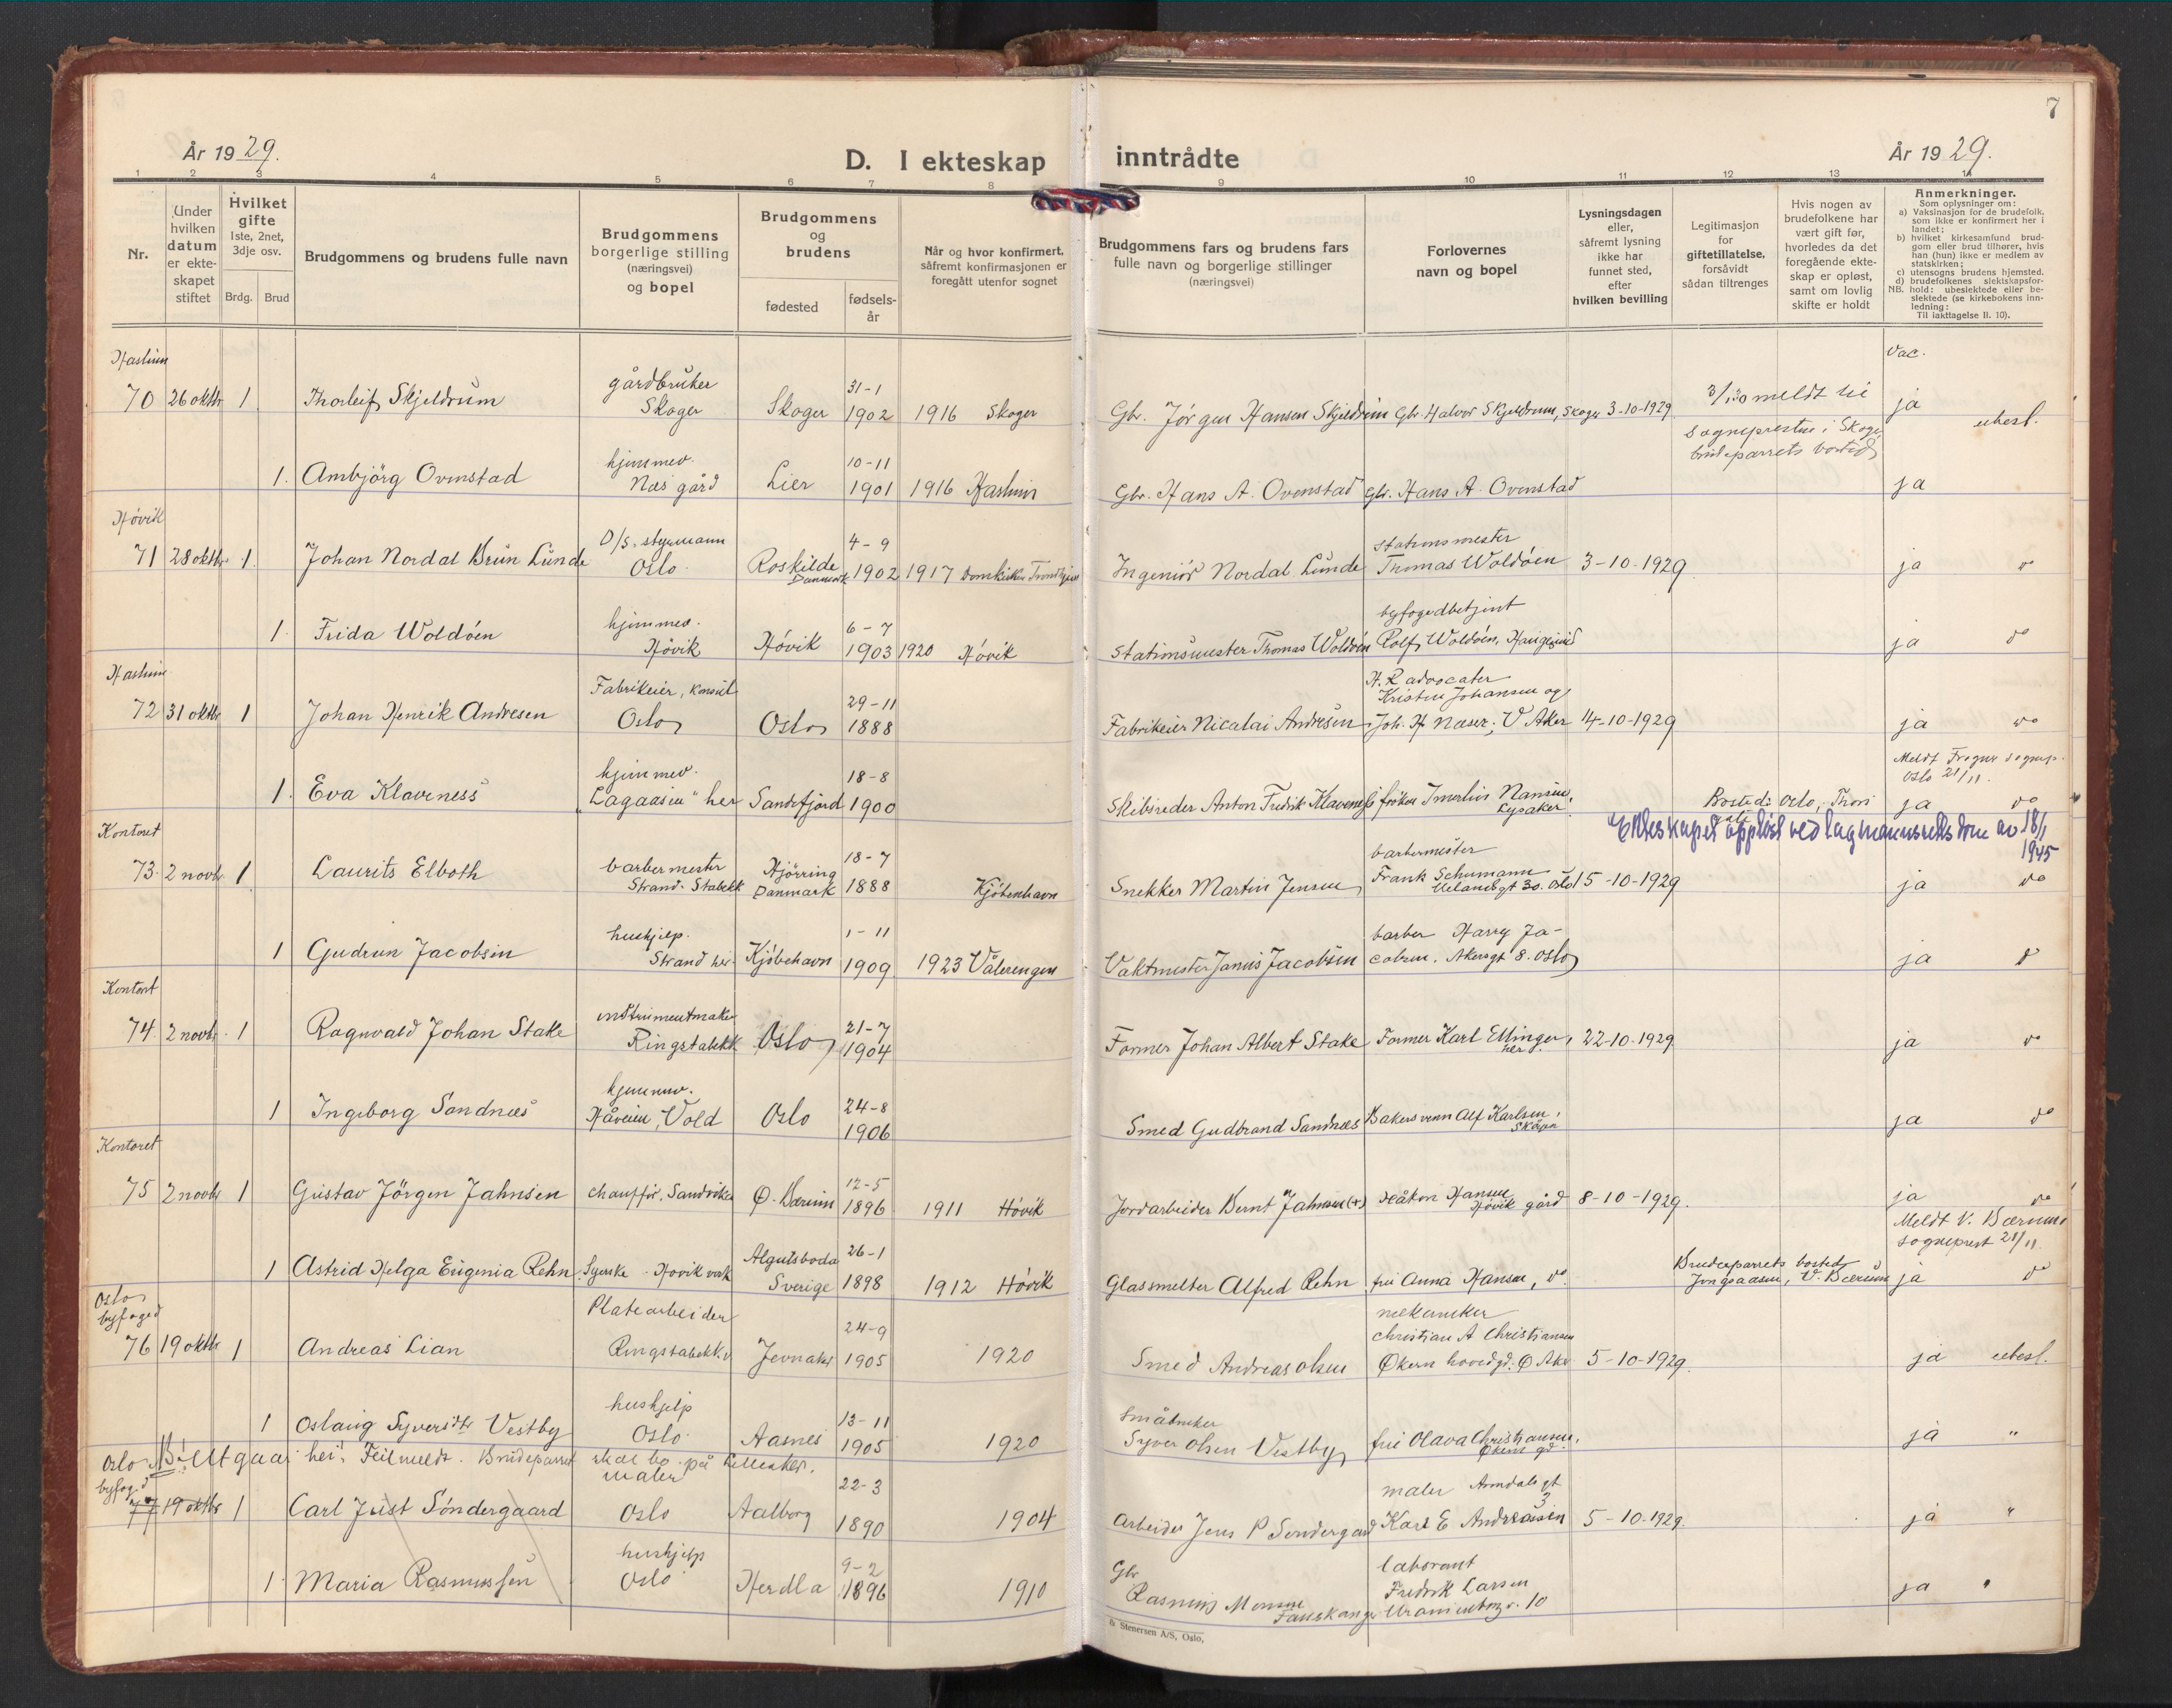 7
År 1929.
D. I ekteskap inntrådte
År 1929.
1 2 3 4 5 6 7 8 9 10 11 12 13 14
Nr.
Under hvilken datum er ekteskapet stiftet
Hvilket gifte
1ste, 2net, 3dje osv.
Brdg. Brud
Brudgommens og brudens fulle navn
Brudgommens borgerlige stilling (næringsvei) og bopel
Brudgommens og brudens
fødested
fødselsår
Når og hvor konfirmert, såfremt konfirmasjonen er foregått utenfor sognet
Brudgommens fars og brudens fars fulle navn og borgerlige stillinger (næringsvei)
Forlovernes navn og bopel
Lysningsdagen eller, såfremt lysning ikke har funnet sted, efter hvilken bevilling
Legitimasjon for giftetillatelse, forsåvidt sådan tiltrenges
Hvis nogen av brudefolkene har vært gift før, hvorledes da det foregående ekteskap er opløst, samt om lovlig skifte er holdt
Anmerkninger.
Som oplysninger om:
a) Vaksinasjon for de brudefolk, som ikke er konfirmert her i landet;
b) hvilket kirkesamfund brudgom eller brud tilhører, hvis han (hun) ikke er medlem av statskirken;
c) utensogns brudens hjemsted.
d) brudefolkenes slektskapsforhold: ubeslektede eller beslektede (se kirkebokens innledning:
NB.
Til iakttagelse II. 10).
Haslum
Vac.
70 26 oktbr 1 Thorleif Skjeldrum gårdbruker Skoger Skoger 31-1 1902 1916 Skoger Gbr. Jørgen Hansen Skjeldrum Gbr Halvor Skjeldrum, Skoger 3-10-1929 meldt til sognepresten i Skoger brudeparrets bosted ja ubesl.
1. Ambjörg Ovnstad hjemmev. Næs gård Lier 10-11 1901 1916 Haslum Gbr. Hans A. Ovenstad Gbr. Hans A. Ovenstad ja
Høvik
71 28 oktbr. 1. Johan Nordal Brun Lunde D/S. styrmann Oslo Roskilde Danmark 4-9 1902 1917 Domkirken Trondhjem Ingeniør Nordal Lunde stationsmester Thomas Woldøen 3-10-1929 ja do
1. Frida Woldøen hjemmev. Høvik Høvik 6-7 1903 1920 Høvik Stationsmester Thomas Woldøen byfogedbetjent Rolf Woldøen, Haugesund ja do
Haslum
72 31 oktbr 1 Johan Henrik Andresen Fabrikeier, konsul Oslo Oslo 29-11 1888 Fabrikeier Nicolai Andresen H.R advocater Kristen Johansen og Joh. H Næser, V Aker 14-10-1929 ja do
Meldt Frogner sognep. Oslo 21/11.
1. Eva Klaveness hjemmev. "Lagaasen" her Sandefjord 18-8 1900 Skibsreder Anton Fredrik Klaveness frøken Imerlin Nansen, Lysaker Bosted: Oslo, ja do
Ekteskapet oppløst ved lagmannsretts dom av 18/1 1945
Kontoret
73. 2 novbr 1 Laurits Elboth barbermester Strand. Stabekk Hjörring Danmark 18-7 1888 Kjøbenhavn Snekker Martin Jensen barbermester Frank Schumann Uelandsgt 30. Oslo 15-10-1929 ja do
1 Gudrun Jacobsen hushjelp. Strand her Kjøbehavn 1-11 1909 1923 Vålerengen Vaktmester Janus Jacobsen barber Harry Jacobsen. Akersgt 8. Oslo ja do
Kontoret
74. 2 novbr. 1 Ragnvald Johan Stake instrumentmaker Ringstabekk Oslo 21-7 1904 Former Johan Albert Stake Former Karl Ellinger, her 22-10-1929 ja do
1 Ingeborg Sandnæs hjemmev. Håveien, Vold Oslo 24-8 1906 Smed Gudbrand Sandnæs Bakersvenn Alf Karlsen, Skøyen ja do
Kontoret
75 2 novbr 1 Gustav Jörgen Jahnsen chauffør, Sandvika Ø. Bærum 12-5 1896 1911 Høvik Jordarbeider Bernt Jahnsen (+) Håkon Hansen Høvik gård 8-10-1929. ja do
Meldt V. Bærums sogneprest 21/11.
1 Astrid Helga Eugenia Rehn Syerske. Høvik verk Algutsboda Sverige 26-1 1898 1912 Høvik Glassmelter Alfred Rehn frk Anna Hansen, do. Brudeparrets bosted Jongsaasen, V. Bærum ja do
Oslo byfoged
76 19 oktbr 1 Andreas Lian Platearbeider Ringstabekkv Jevnaker 24-9 1905 1920 Smed Andreas Olsen mekaniker Christian A Christiansen Økern hovedgd. Ø Aker 5-10-1929. ja ubesl.
1 Oslaug Syversdtr Vestby hushjelp Oslo. Aasnes 13-11 1905 1920 Småbruker Syver Olsen Vestby frk Olava Christiansen, Økern gd. ja "
Oslo byfoged NB! Utgaar her. Feilmeldt. Brudeparret skal bo på Lilleaker.
77 19 oktbr 1 Carl Just Söndergaard maler Oslo Aalborg 22-3 1890 1904 Arbeider Jens P Söndergård maler Arendalsgt 3 Karl E Andreassen 5-10-1929. ja "
1. Maria Rasmussen hushjelp Oslo Herdla 9-2 1896 1910 Gbr Rasmus Monsen Fauskanger laborant Fredrik Larsen Uranienborgv. 10 ja "
Stenersen A/S, Oslo.